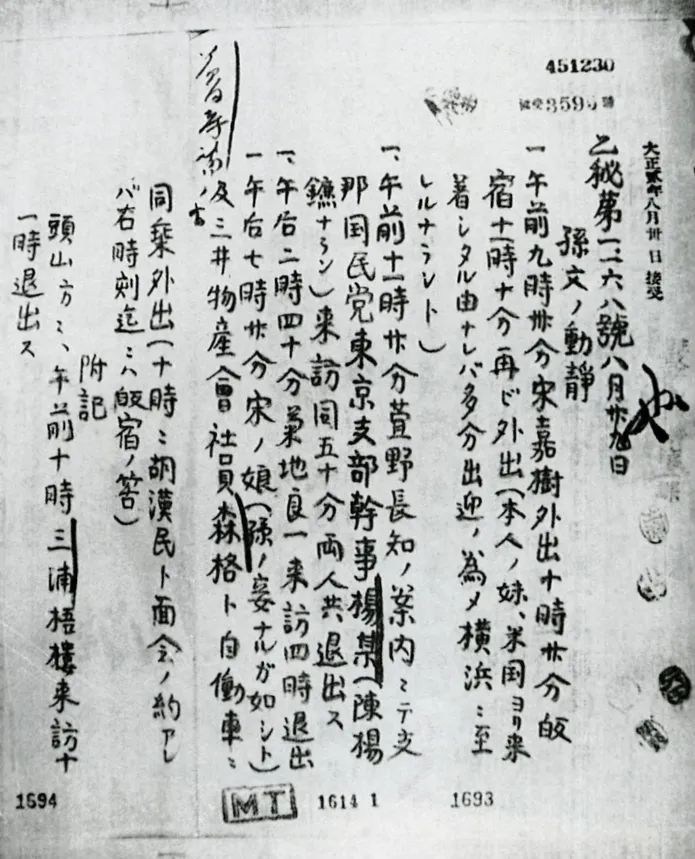 451230
3595號
大正貳年八月卅日接受
乙秘第一二六八號八月廿九日
孫文ノ動靜
一午前九時卅分宋嘉樹外出十時廿分皈
宿十一時十分再ビ外出(本人ノ妹、米国ヨリ来
着シタル由ナレバ多分出迎ノ為メ横浜ニ至
レルナラント)
一、午前十一時廿分萱野長知ノ案内ニテ支
那国民党東京支部幹事楊某(陳楊
鑣ナラン)来訪同五十分両人共退出ス
一、午后二時四十分菊地良一来訪四時退出
一午后七時廿分宋ノ娘(孫ノ妾ナルガ如シト)
及三井物産會社員森格ト自働車ニ
同乗外出(十時ニ胡漢民ト面会ノ約アレ
バ右時刻迄ニハ皈宿ノ筈)
附記
頭山方ニハ、午前十時三浦梧樓来訪十
一時退出ス
1693
1614 1
MT
1694